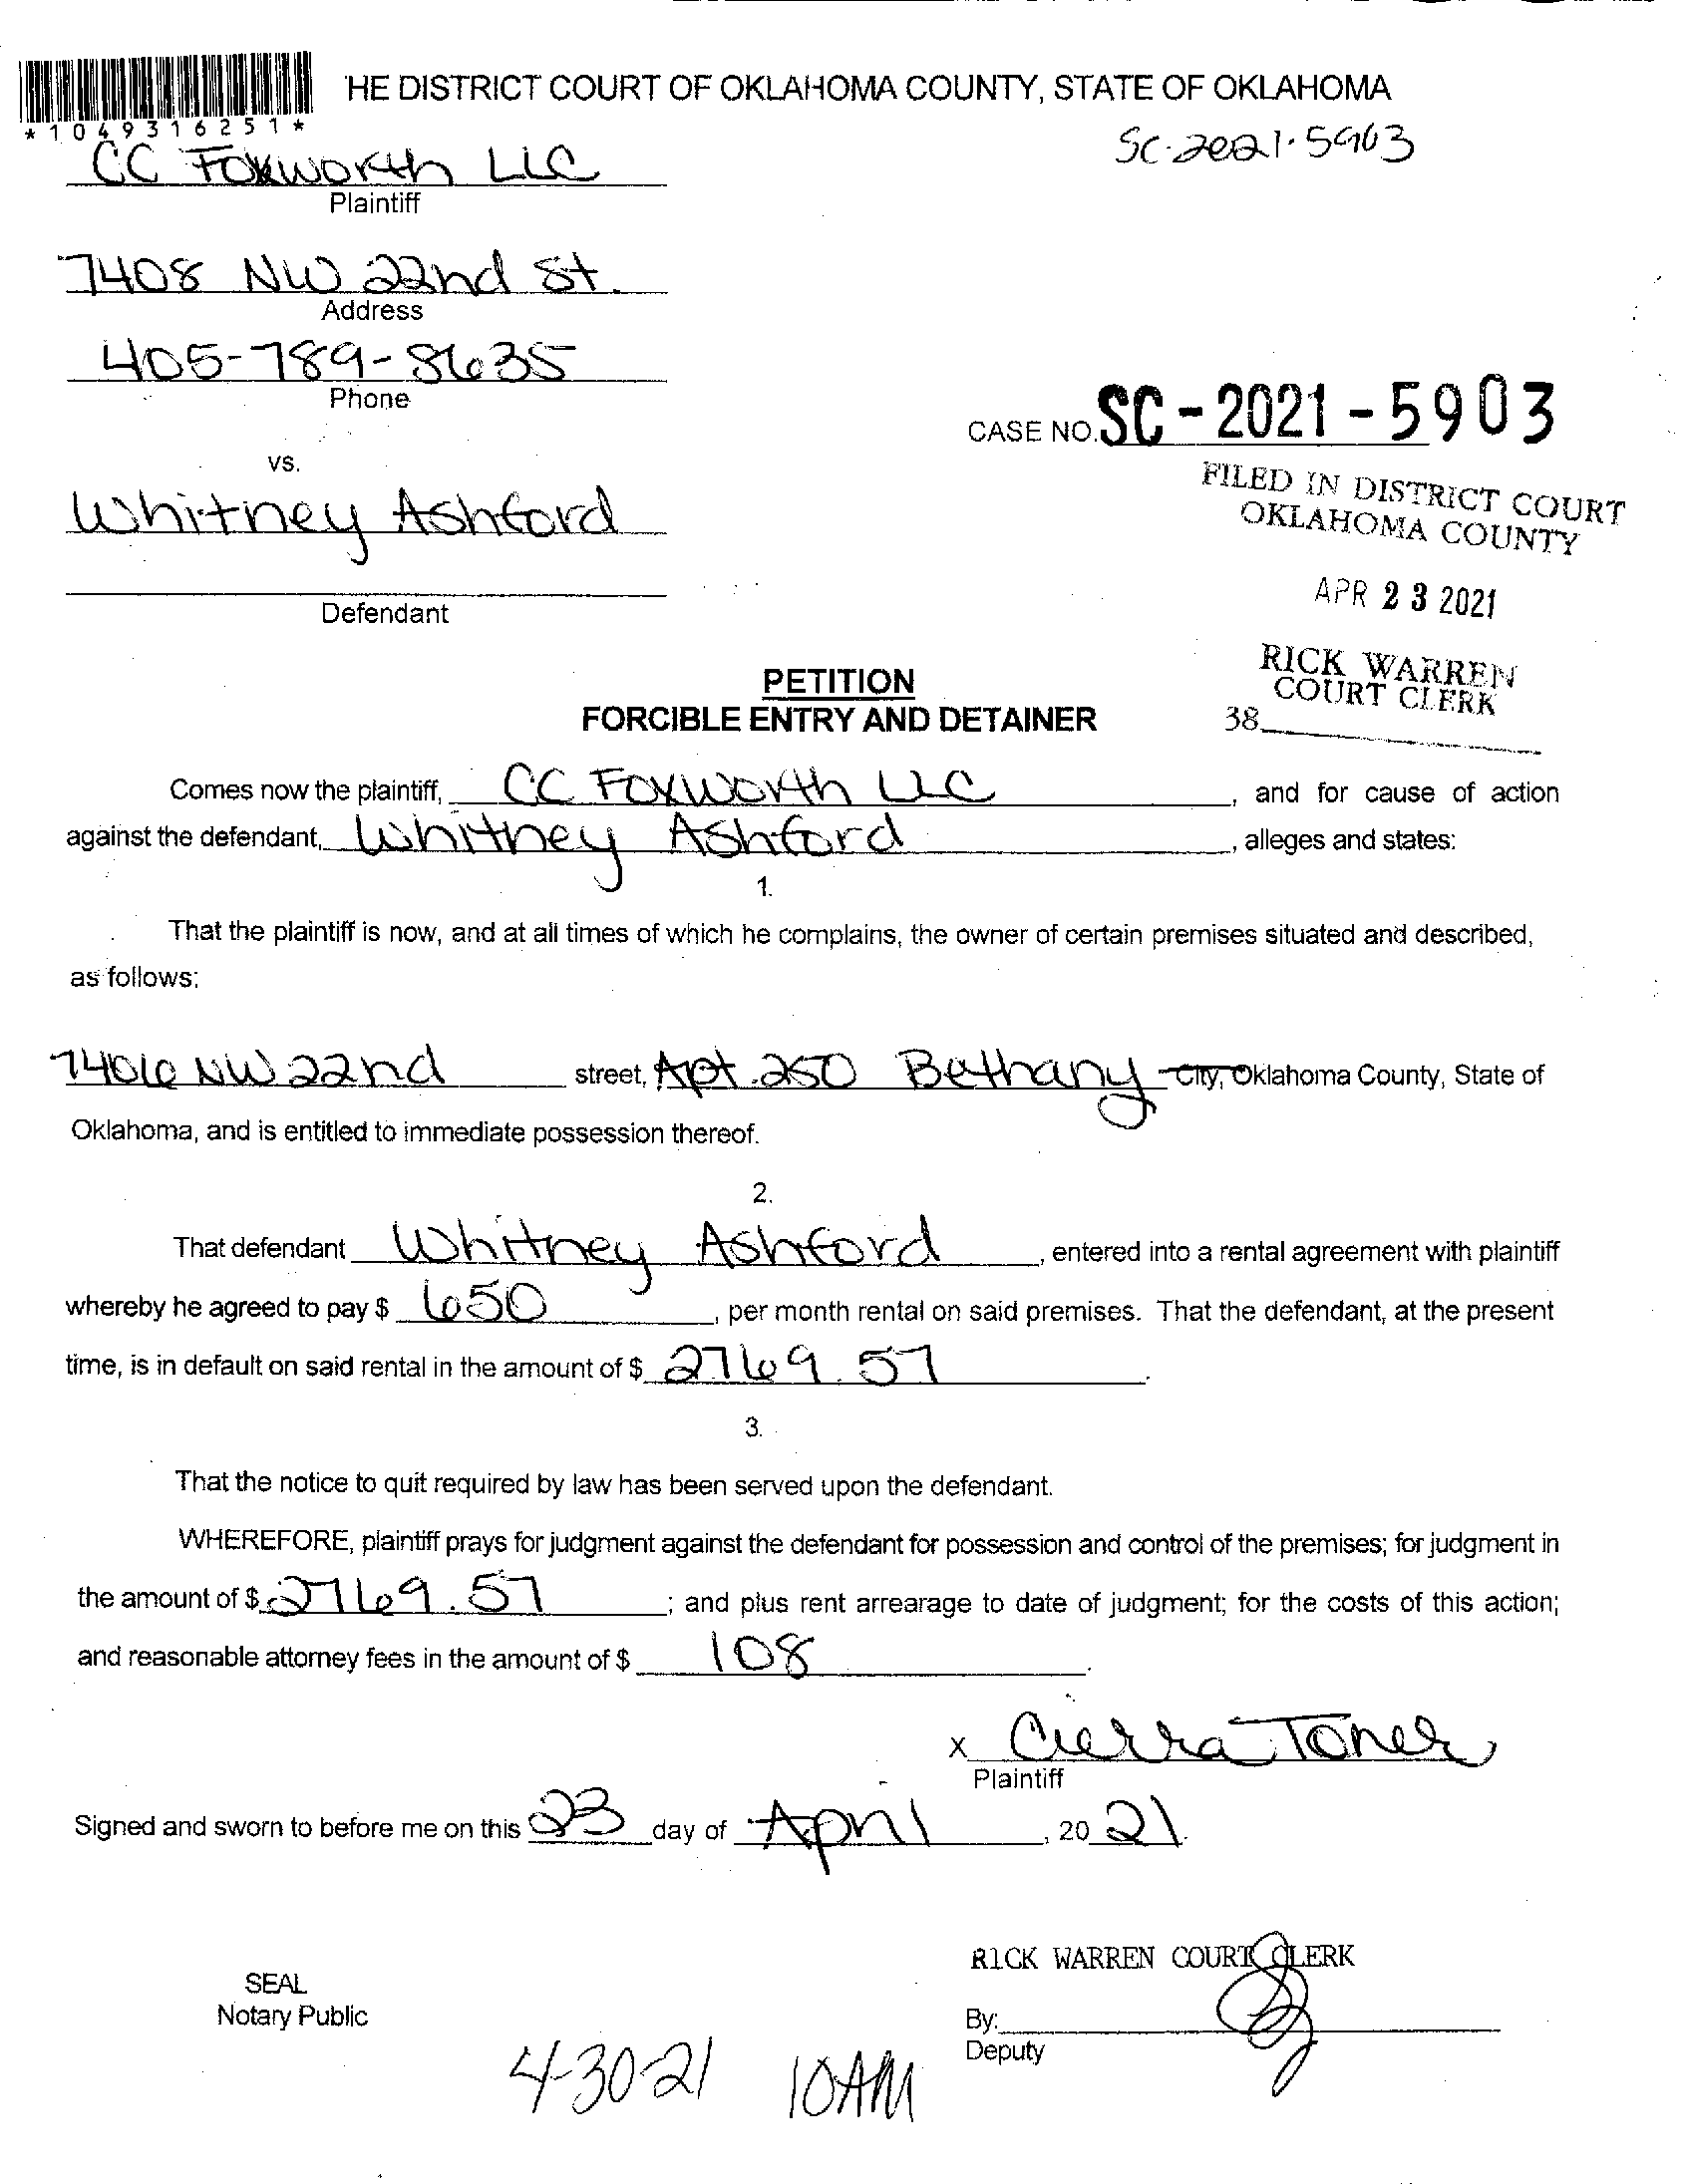 HE DISTRICT COURT OF OKLAHOMA COUNTY, STATE OF OKLAHOMA
*1049316251*
SC-2021-5903
CC Foxworth LLC
Plaintiff
7408 NW 22nd St.
Address
405-789-8635
Phone
CASE NO. SC-2021-5903
vs.
FILED IN DISTRICT COURT
OKLAHOMA COUNTY
Whitney Ashford
APR 23 2021
Defendant
RICK WARREN
COURT CLERK
38
PETITION
FORCIBLE ENTRY AND DETAINER
Comes now the plaintiff, CC Foxworth LLC, and for cause of action
against the defendant, Whitney Ashford, alleges and states:
1.
That the plaintiff is now, and at all times of which he complains, the owner of certain premises situated and described,
as follows:
7406 NW 22nd street, Apt. 250 Bethany City, Oklahoma County, State of
Oklahoma, and is entitled to immediate possession thereof.
2.
That defendant Whitney Ashford, entered into a rental agreement with plaintiff
whereby he agreed to pay $ 650, per month rental on said premises. That the defendant, at the present
time, is in default on said rental in the amount of $ 2769.57.
3.
That the notice to quit required by law has been served upon the defendant.
WHEREFORE, plaintiff prays for judgment against the defendant for possession and control of the premises; for judgment in
the amount of $ 2769.57; and plus rent arrearage to date of judgment; for the costs of this action;
and reasonable attorney fees in the amount of $ 108.
x Cierra Toner
Plaintiff
Signed and sworn to before me on this 23 day of April, 20 21.
RICK WARREN COURT CLERK
SEAL
Notary Public
By:
Deputy
4-30-21 10AM